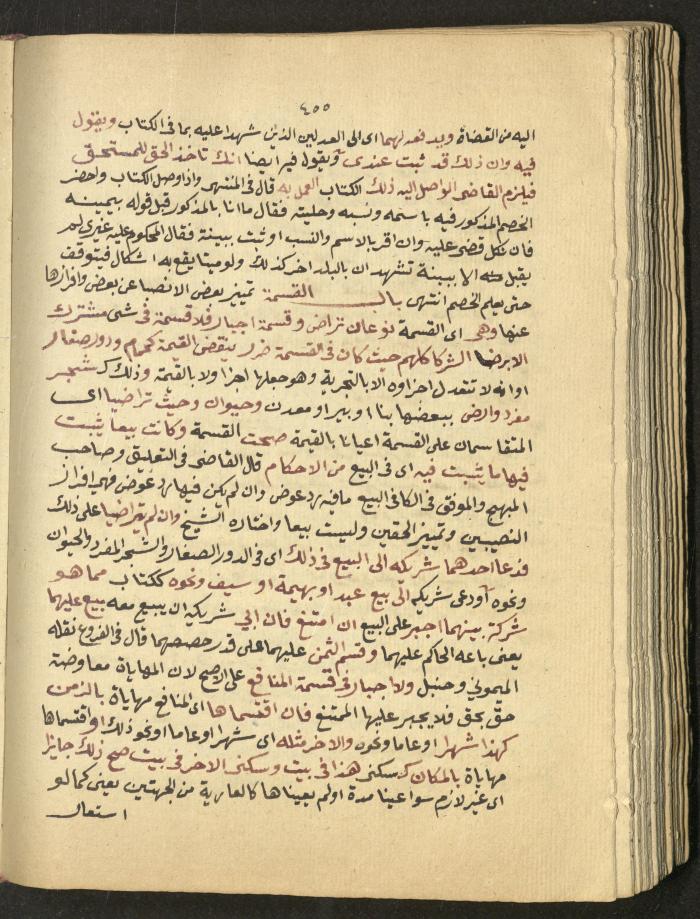 ٤٥٥
اليه من القضاة ويدفعه لهما اى الى العدلين الذين شهدا عليه بما فى الكتاب ويقول
فيه وان ذلك قد ثبت عندى ويقول فيه ايضا انك تاخذ الحق للمستحق
فيلزم القاضى الواصل اليه ذلك الكتاب العمل به قال فى المنتهى واذا وصل الكتاب واحضر
الخصم المذكور فيه باسمه ونسبه وحليته فقال ما انا بالمذكور قبل قوله بيمينه
فان نكل قضى عليه وان اقر بالاسم والنسب او ثبت ببينة فقال المحكوم عليه غيرى لم
يقبل الا ببينة تشهد ان بالبلد اخر كذلك ولو ميتا يقع به اشكال فيتوقف
حتى يعلم الخصم انتهى باب القسمة تمييز بعض الانصبا عن بعض وافرازها
عنها وهى اى القسمة نوعان تراض وقسمة اجبار فلا قسمة فى شى مشترك
الا برضا الشركا كلهم حيث كان فى القسمة ضرر ينقص القيمة كحمام ودور صغار
او انه لا تتعدل اجزاوه الا بالتجزية وهو جعلها اجزا ولا بالقيمة وذلك كشجر
مفرد وارض ببعضها بنا او بير او معدن وحيوان وحيث تراضيا اى
المتقاسمان على القسمة اعيانا بالقيمة صحت القسمة وكانت بيعا يثبت
فيها ما يثبت فيه اى فى البيع من الاحكام قال القاضى فى التعليق وصاحب
المبهج والموفق فى الكافى البيع ما فيه رد عوض وان لم يكن فيها رد عوض فهى افراز
النصيبين وتمييز الحقين وليست بيعا واختاره الشيخ وان لم يتراضيا على ذلك
فدعا احدهما شريكه الى البيع فى ذلك اى فى الدور الصغار والشجر المفرد والحيوان
ونحوه او دعى شريكه الى بيع عبد او بهيمة او سيف ونحوه ككتاب مما هو
شركة بينهما اجبر على البيع ان امتنع فان ابي شريكه ان يبيع معه بيع عليهما
يعنى باعه الحاكم عليهما وقسم الثمن عليهما على قدر حصصهما قال فى الفروع نقله
الميمونى وحنبل ولا اجبار فى قسمة المنافع على الاصح لان المهاياة معاوضة
حق بحق فلا يجبر عليها الممتنع فان اقتسماها اى المنافع مهاياة بالزمن
كهذا شهرا او عاما ونحوه والاخر مثله اى شهرا او عاما او نحو ذلك او اقتسماها
مهاياة بالمكان كسكنى هذا فى بيت وسكنى الاخر فى بيت صح ذلك جايزا
اى غير لازم سوا عينا مدة او لم يعيناها كالعارية من الجهتين يعنى كما لو
استعار